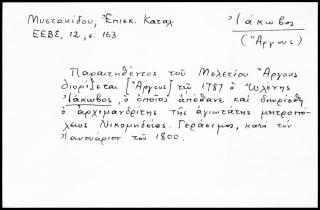 Μυστακίδου, Ἐπισκ. Καταλ
ΕΕΒΣ, 12, σ. 163
Ἰάκωβος
(Ἄργους)
Παραιτηθέντος τοῦ Μελετίου Ἄργους
διορίζεται [Ἄργους] τῷ 1787 ὁ Ὠλένης
Ἰάκωβος, ὁ ὁποῖος ἀπέθανε καὶ διωρίσθη
ὁ ἀρχιμανδρίτης τῆς ἁγιωτάτης μητροπό-
λεως Νικομηδείας Γεράσιμος, κατὰ τὸν
Ἰανουάριον τοῦ 1800.